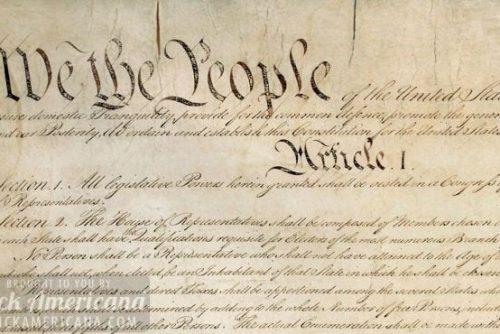 We the People of the United Stat
sure domestic Tranquility, provide for the common defence, promote the gener
and our Posterity, do ordain and establish this Constitution for the United Stat
Article. I.
Section. 1. All legislative Powers herein granted shall be vested in a Congress
of Representatives.
Section. 2. The House of Representatives shall be composed of Members chosen
in each State shall have the Qualifications requisite for Electors of the most numerous Branch
No Person shall be a Representative who shall not have attained to the Age of
and who shall not, when elected, be an Inhabitant of that State in which he shall be chosen
Representatives and direct Taxes shall be apportioned among the several States which
shall be determined by adding to the whole Number of free Persons, includ
other Persons. The actual Enumeration shall be made
BROUGHT TO YOU BY
ck Americana
CKAMERICANA.COM